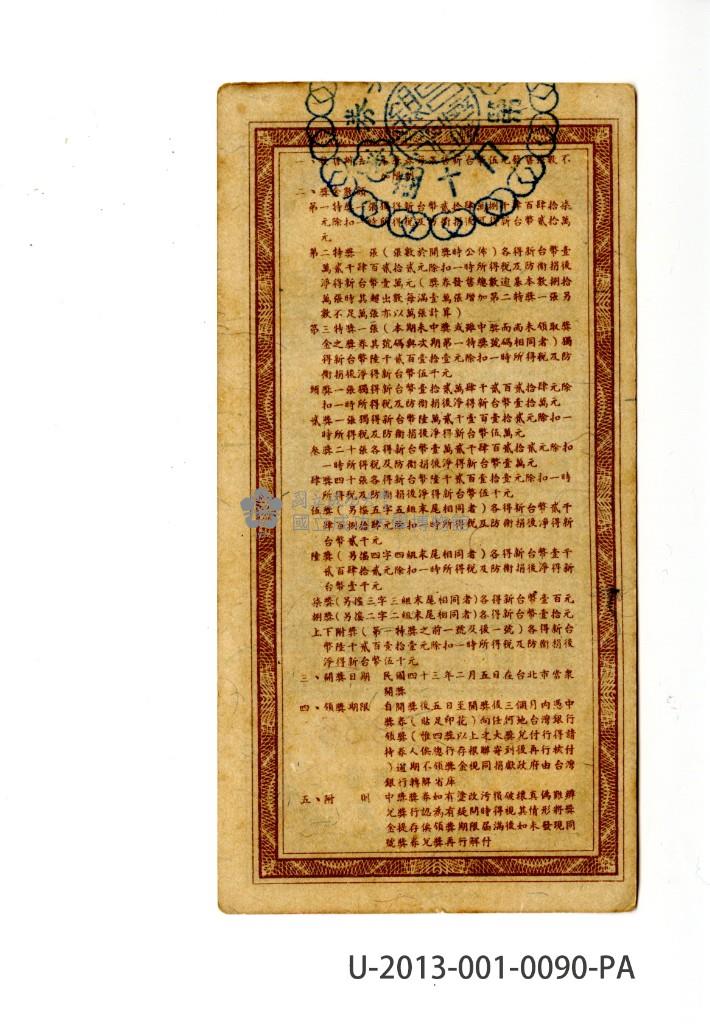 二、獎金數額
元
第二特獎 張(張數於開獎時公佈)各得新台幣壹
萬貳千肆百貳拾貳元除扣一時所得稅及防衛捐後
淨得新台幣壹萬元(獎券發售總數逾基本數捌拾
萬張時其超出數每滿壹萬張增加第二特獎一張另
數不足萬張亦以萬張計算)
第三特獎一張(本期未中獎或雖中獎而尚未領取獎
金之獎券其號碼與次期第一特獎號碼相同者)獨
得新台幣陸千貳百壹拾壹元除扣一時所得稅及防
衛捐後淨得新台幣伍千元
頭獎一張獨得新台幣壹拾貳萬肆千貳百貳拾肆元除
扣一時所得稅及防衛捐後淨得新台幣壹拾萬元
貳獎一張獨得新台幣陸萬貳千壹百壹拾貳元除扣一
時所得稅及防衛捐後淨得新台幣伍萬元
叁獎二十張各得新台幣壹萬貳千肆百貳拾貳元除扣
一時所得稅及防衛捐後淨得新台幣壹萬元
肆獎四十張各得新台幣陸千貳百壹拾壹元除扣一時
所得稅及防衛捐後淨得新台幣伍千元
伍獎(另搖五字五組末尾相同者)各得新台幣貳千
肆百捌拾肆元除扣一時所得稅及防衛捐後淨得新
台幣貳千元
陸獎(另搖四字四組末尾相同者)各得新台幣壹千
貳百肆拾貳元除扣一時所得稅及防衛捐後淨得新
台幣壹千元
柒獎(另搖三字三組末尾相同者)各得新台幣壹百元
捌獎(另搖二字二組末尾相同者)各得新台幣壹拾元
上下附獎(第一特獎之前一號及後一號)各得新台
幣陸千貳百壹拾壹元除扣一時所得稅及防衛捐後
淨得新台幣伍千元
三、開獎日期 民國四十三年二月五日在台北市當眾
開獎
四、領獎期限 自開獎後五日至開獎後三個月內憑中
獎券(貼足印花)向任何地台灣銀行
領獎(惟四獎以上之大獎兌付行得請
持券人俟總行存根聯寄到後再行核付
)逾期不領獎金視同捐獻政府由台灣
銀行轉解省庫
五、附 則 中獎獎券如有塗改污損破壞真偽難辨
兌獎行認為有疑問時得視其情形將獎
金提存俟領獎期限屆滿後如未發現同
號獎券兌獎再行解付
U-2013-001-0090-PA